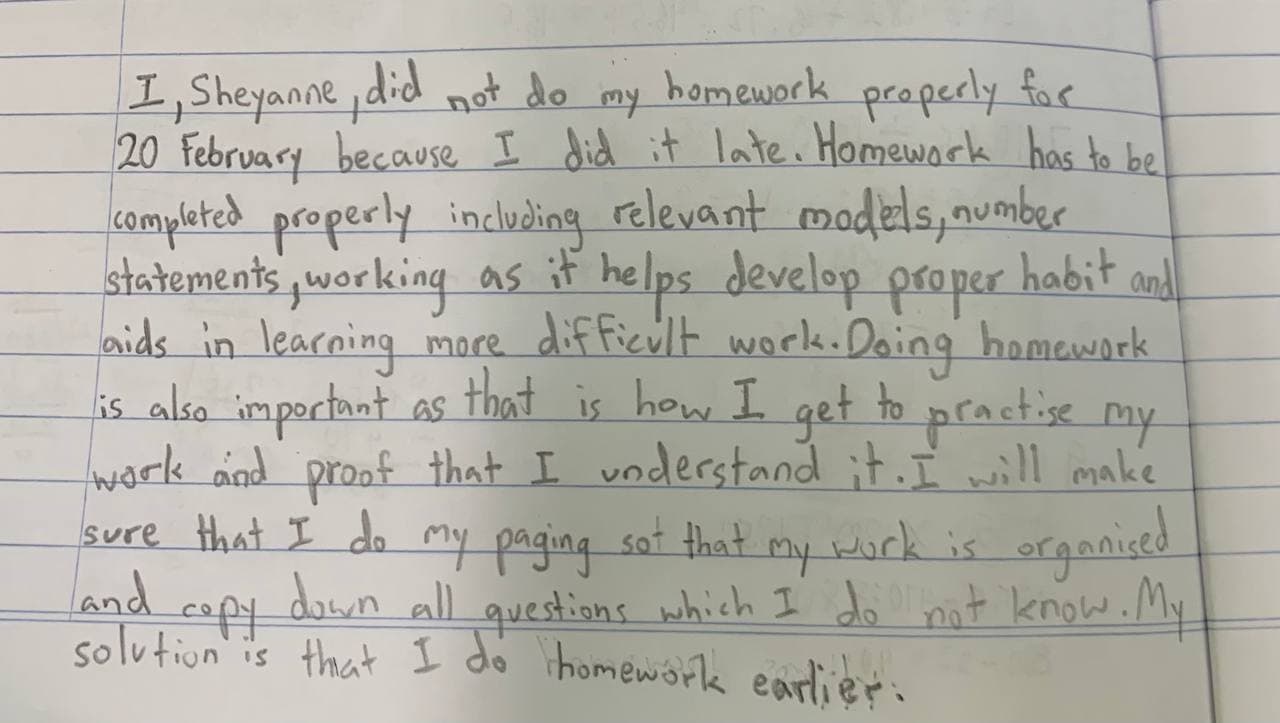 I, Sheyanne, did not do my homework properly for
20 February because I did it late. Homework has to be
completed properly including relevant models, number
statements, working as it helps develop proper habit and
aids in learning more difficult work. Doing homework
is also important as that is how I get to practise my
work and proof that I understand it. I will make
sure that I do my paging sot that my work is organised
and copy down all questions which I do not know. My
solution is that I do homework earlier.